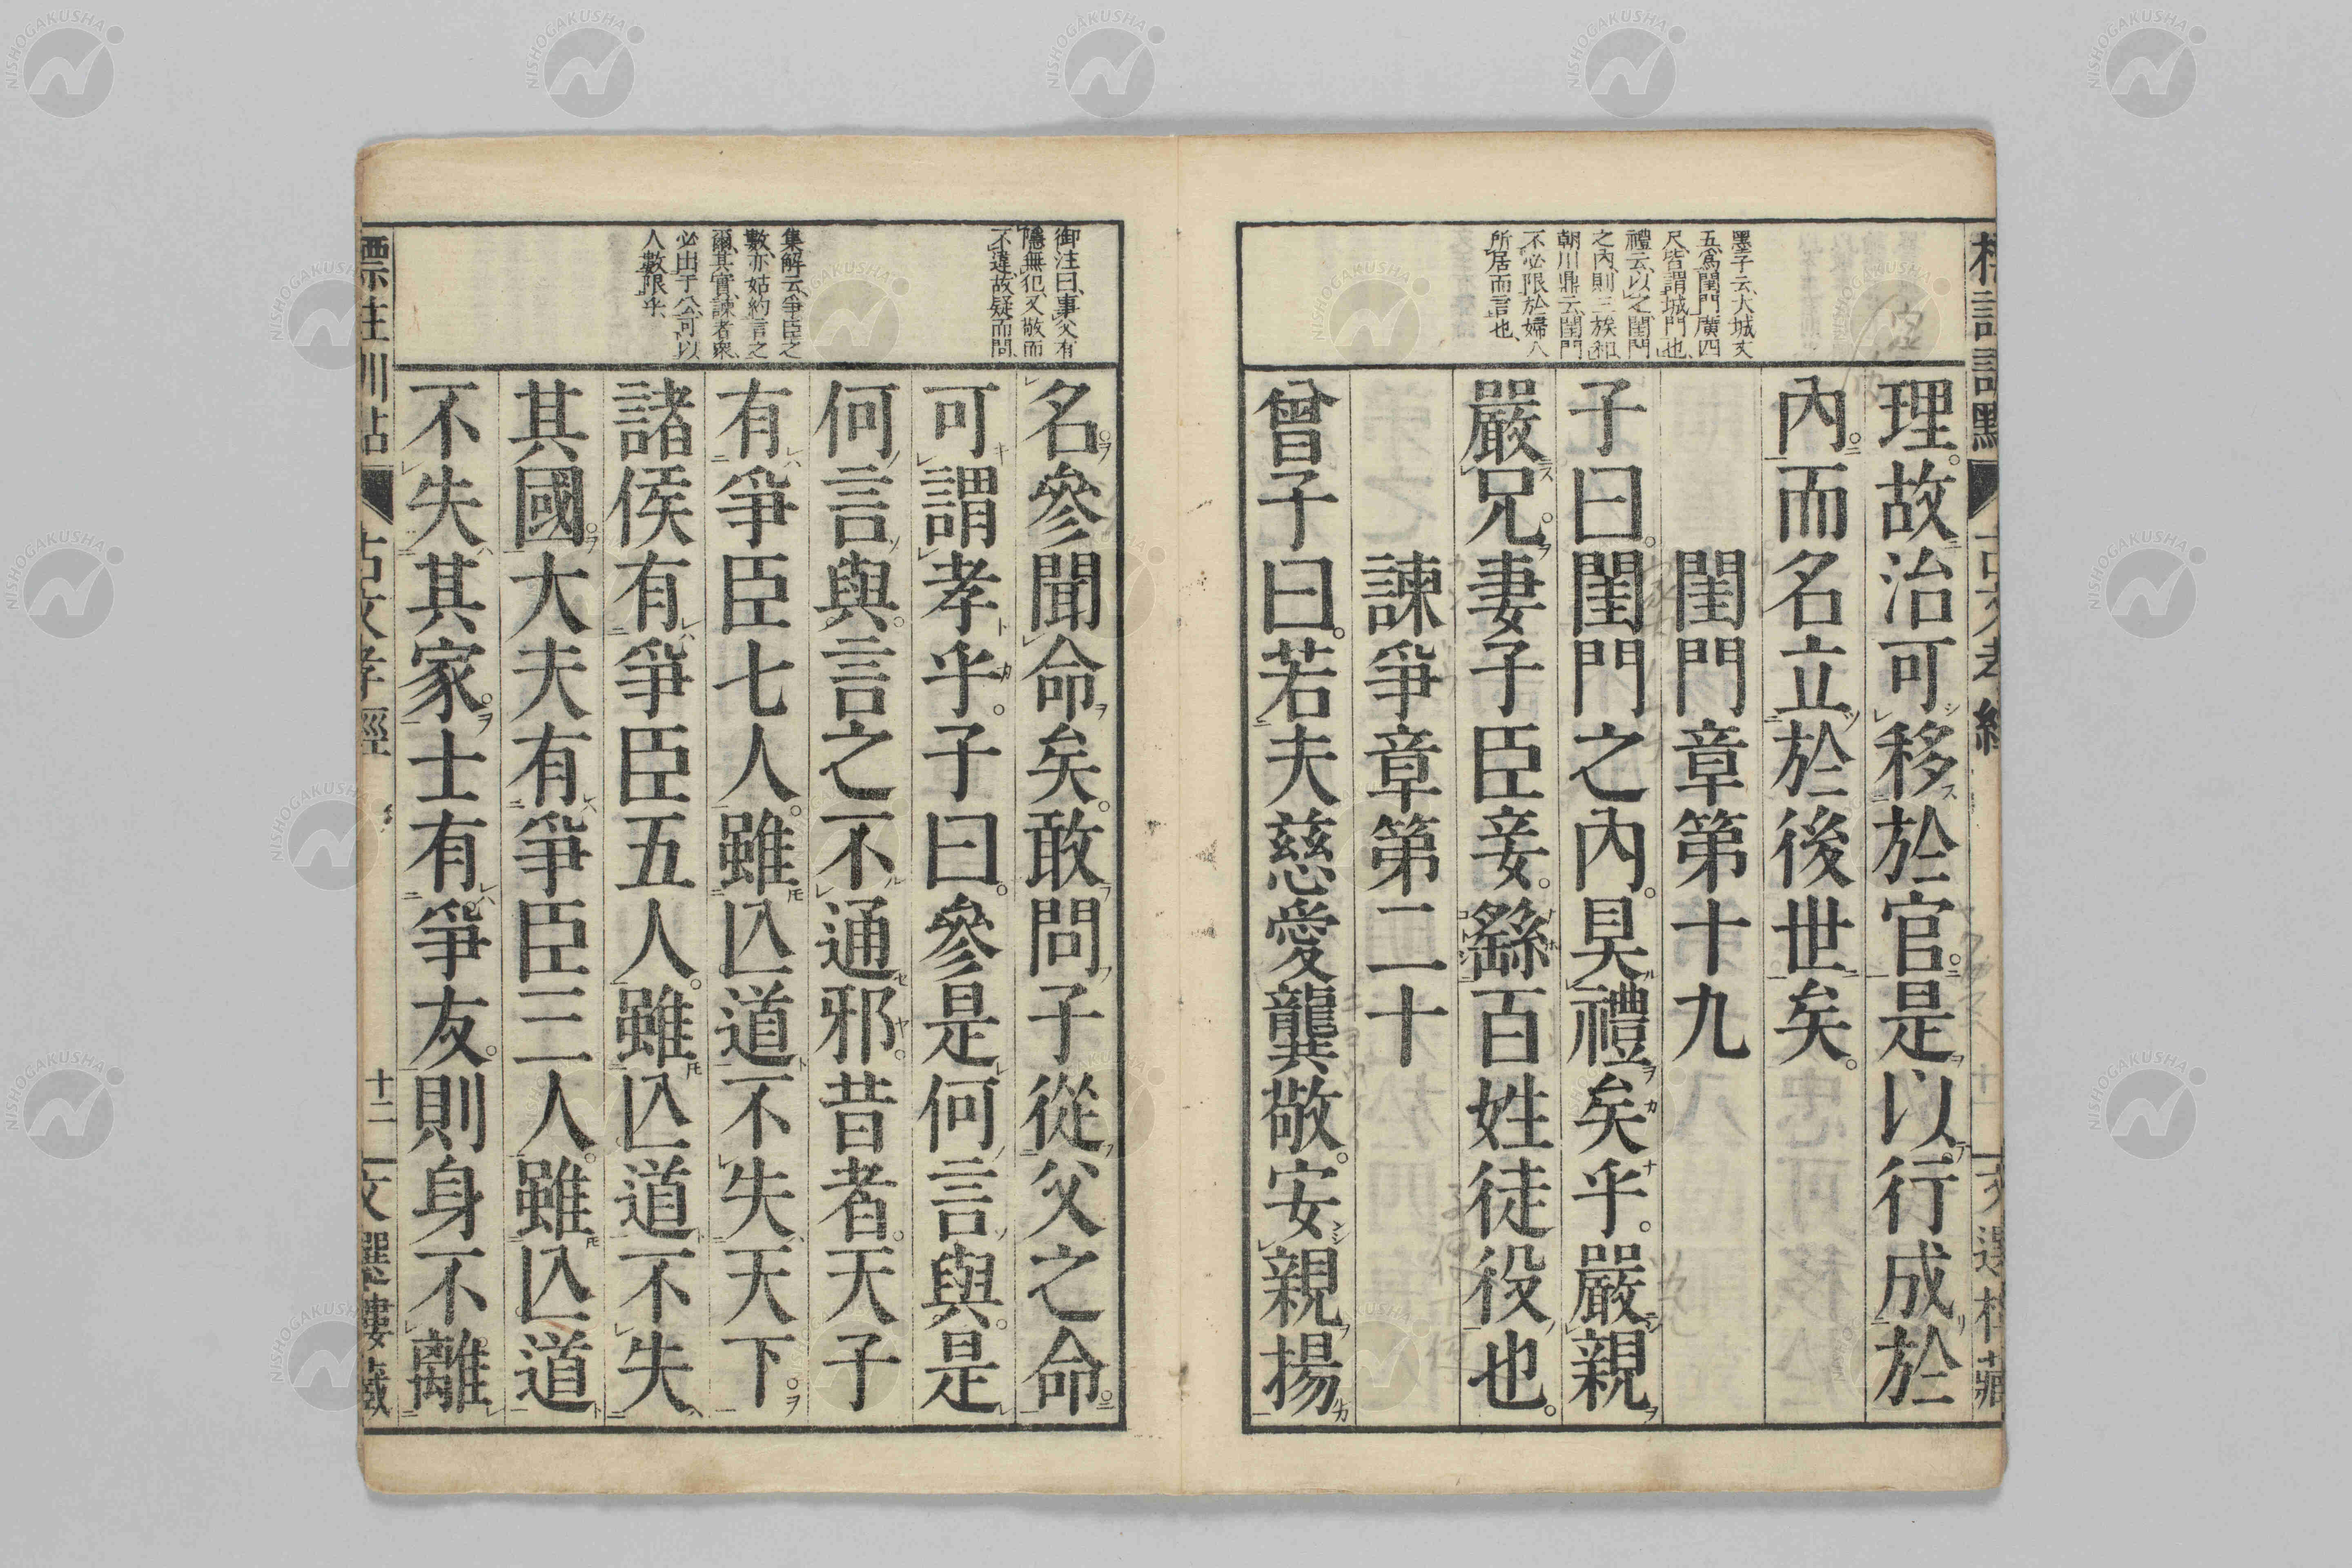 墨子云、大城丈
五爲閨門、廣四
尺、皆謂城門也、
禮云、以之閨門
之內、則三族和、
朝川鼎云、閨門
不必限於婦人
所居而言也、
理。故治可移於官。是以行成於
內。而名立於後世矣。
閨門章第十九
子曰。閨門之內。具禮矣乎。嚴親
嚴兄。妻子臣妾。繇百姓徒役也。
諫爭章第二十
曾子曰。若夫慈愛龔敬。安親揚
御注曰、事父有
隱無犯、又敬而
不違、故疑而問、
集解云、爭臣之
數、亦姑約言之
爾、其實諫者衆、
必出于公、可以
人數限乎、
名。參聞命矣。敢問子從父之命。
可謂孝乎。子曰。參是何言與。是
何言與。言之不通邪。昔者。天子
有爭臣七人。雖亾道不失天下。
諸侯有爭臣五人。雖亾道不失
其國。大夫有爭臣三人。雖亾道
不失其家。士有爭友。則身不離
標注訓點
古文孝經
十二
文選樓藏
NISHOGAKUSHA